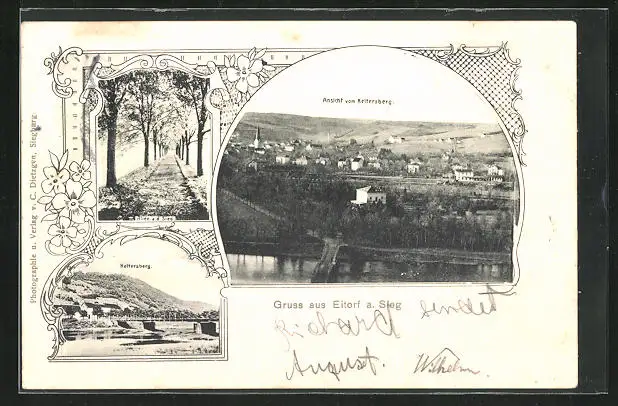 Photographie u. Verlag v. C. Dietzgen, Siegburg.
Allee a.d. Sieg.
Keltersberg.
Ansicht vom Keltersberg.
Gruss aus Eitorf a. Sieg
sendet
Richard
August. Wilhelm.